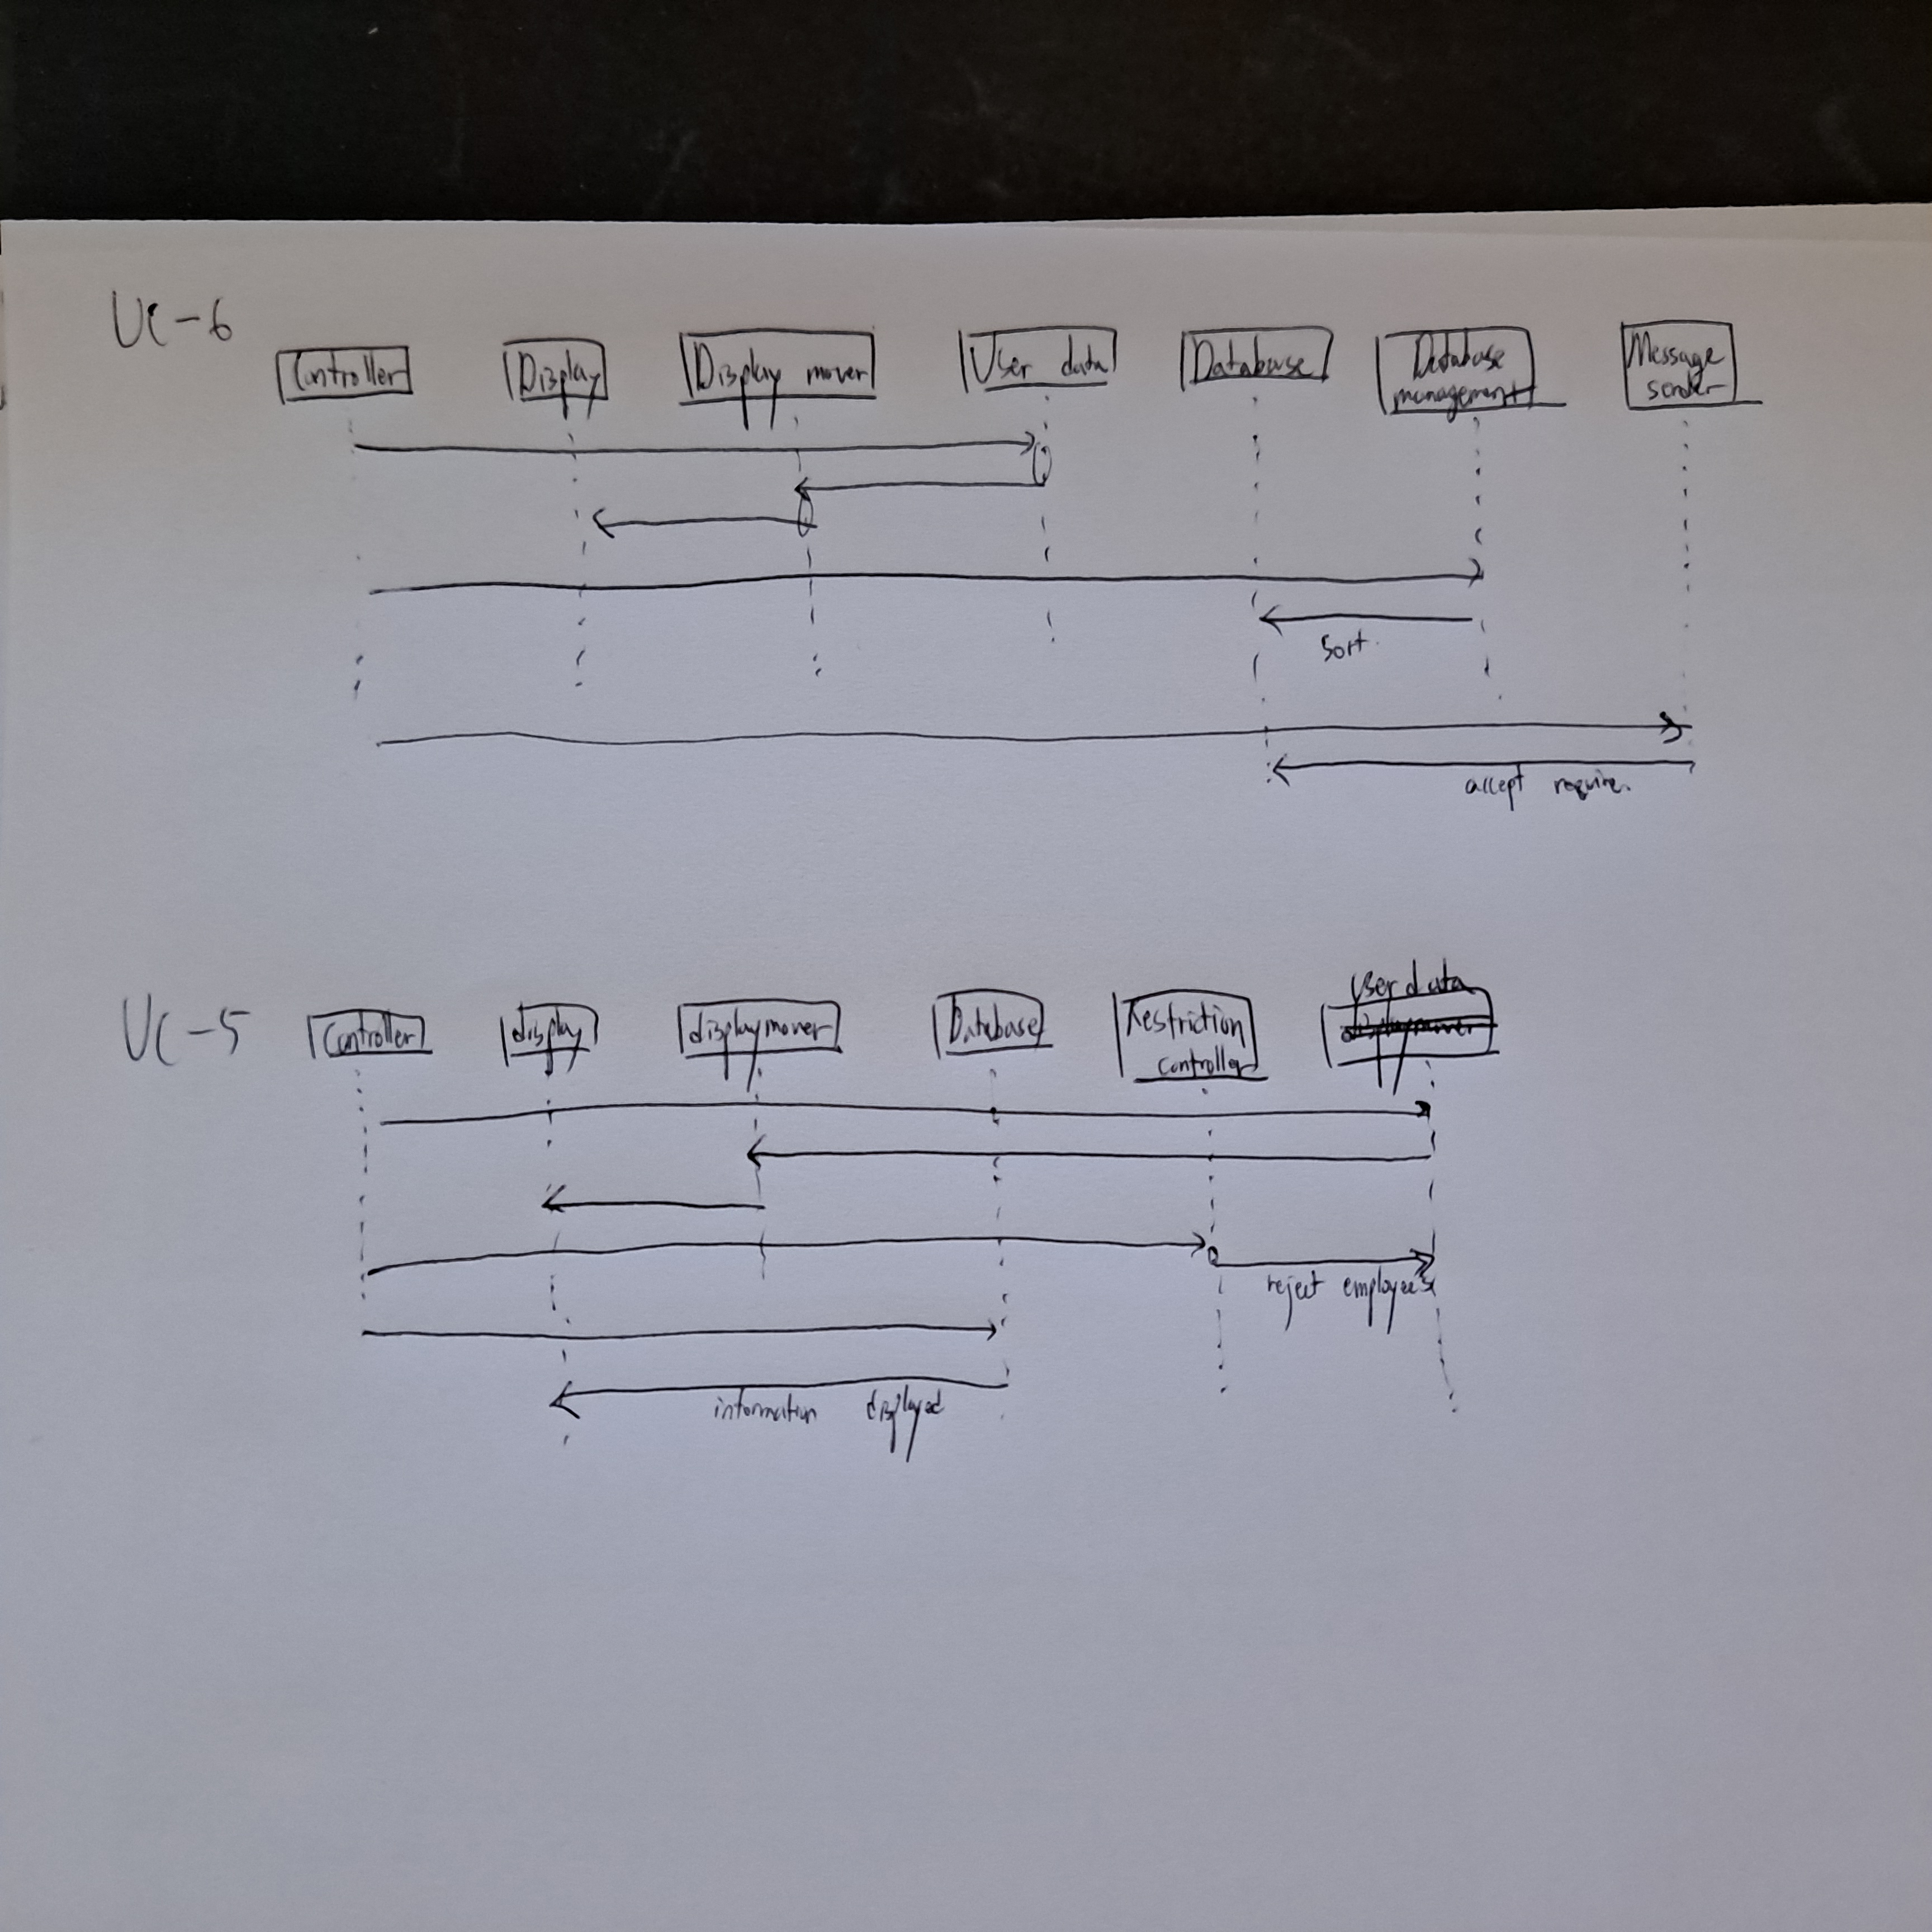 UC-6
Controller
Display
Display mover
User data
Database
Database
management
Message
sender
sort
accept require.
UC-5
Controller
display
display mover
Database
Restriction
controller
User data
reject employees
information displayed